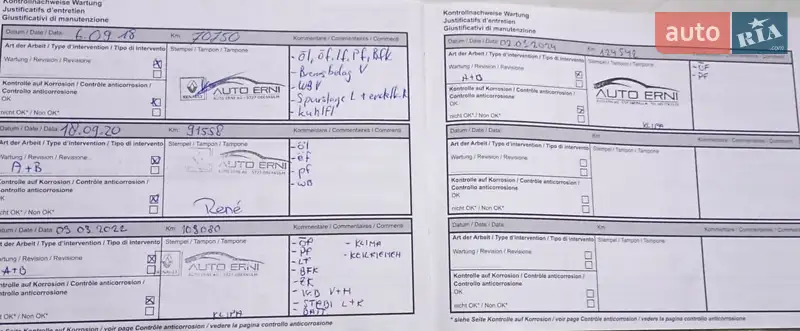 Kontrollnachweise Wartung
Justificatifs d'entretien
Giustificativi di manutenzione
Datum / Date / Data 6.09.18 Km 70150 Kommentare / Commentaires / Commenti
Art der Arbeit / Type d'intervention / Tipo di intervento Stempel / Tampon / Tampone
Wartung / Revision / Revisione
Kontrolle auf Korrosion / Contrôle anticorrosion /
Controllo anticorrosione
OK
nicht OK* / Non OK*
AUTO ERNI
- Öl, öf, Lf, Pf, Bfk
- Bremsbelag V
- WBV
- Kühlfl
Datum / Date / Data 18.09.20 Km 91558 Kommentare / Commentaires / Commenti
Art der Arbeit / Type d'intervention / Tipo di intervento Stempel / Tampon / Tampone
Wartung / Revision / Revisione
A+B
Kontrolle auf Korrosion / Contrôle anticorrosion /
Controllo anticorrosione
OK
nicht OK* / Non OK*
AUTO ERNI
René
- öl
- öf
- pf
- WB
Datum / Date / Data 09 03 2022 Km 103080 Kommentare / Commentaires / Commenti
Art der Arbeit / Type d'intervention / Tipo di intervento Stempel / Tampon / Tampone
Wartung / Revision / Revisione
A+B
Kontrolle auf Korrosion / Contrôle anticorrosion /
Controllo anticorrosione
OK
nicht OK* / Non OK*
AUTO ERNI
KLIPA
- ÖF - KLIMA
- PF - KEILRIEMEN
- LF
- BFK
- ZK
- WB V+H
- STABI L+R
- BATT
* siehe Seite Kontrolle auf Korrosion / voir page Contrôle anticorrosion / vedere la pagina controllo anticorrosione
Kontrollnachweise Wartung
Justificatifs d'entretien
Giustificativi di manutenzione
Datum / Date / Data Km
Art der Arbeit / Type d'intervention / Tipo di intervento Stempel / Tampon / Tampone
Wartung / Revision / Revisione
A+B
Kontrolle auf Korrosion / Contrôle anticorrosion /
Controllo anticorrosione
OK
nicht OK* / Non OK*
AUTO ERNI
KLIPA
- ÖF
- PF
Datum / Date / Data Km Kommentare / Commentaires / Commenti
Art der Arbeit / Type d'intervention / Tipo di intervento Stempel / Tampon / Tampone
Wartung / Revision / Revisione
Kontrolle auf Korrosion / Contrôle anticorrosion /
Controllo anticorrosione
OK
nicht OK* / Non OK*
Datum / Date / Data Km Kommentare / Commentaires / Commenti
Art der Arbeit / Type d'intervention / Tipo di intervento Stempel / Tampon / Tampone
Wartung / Revision / Revisione
Kontrolle auf Korrosion / Contrôle anticorrosion /
Controllo anticorrosione
OK
nicht OK* / Non OK*
* siehe Seite Kontrolle auf Korrosion / voir page Contrôle anticorrosion / vedere la pagina controllo anticorrosione
auto RIA.com